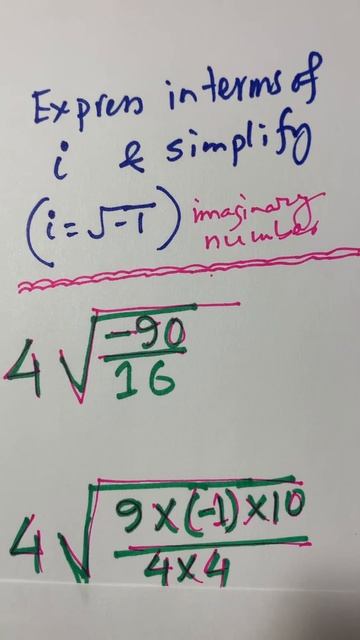 Express in terms of
i & simplify
(i = √-1) imaginary
number
4 √-90/16
4 √9×(-1)×10/4×4